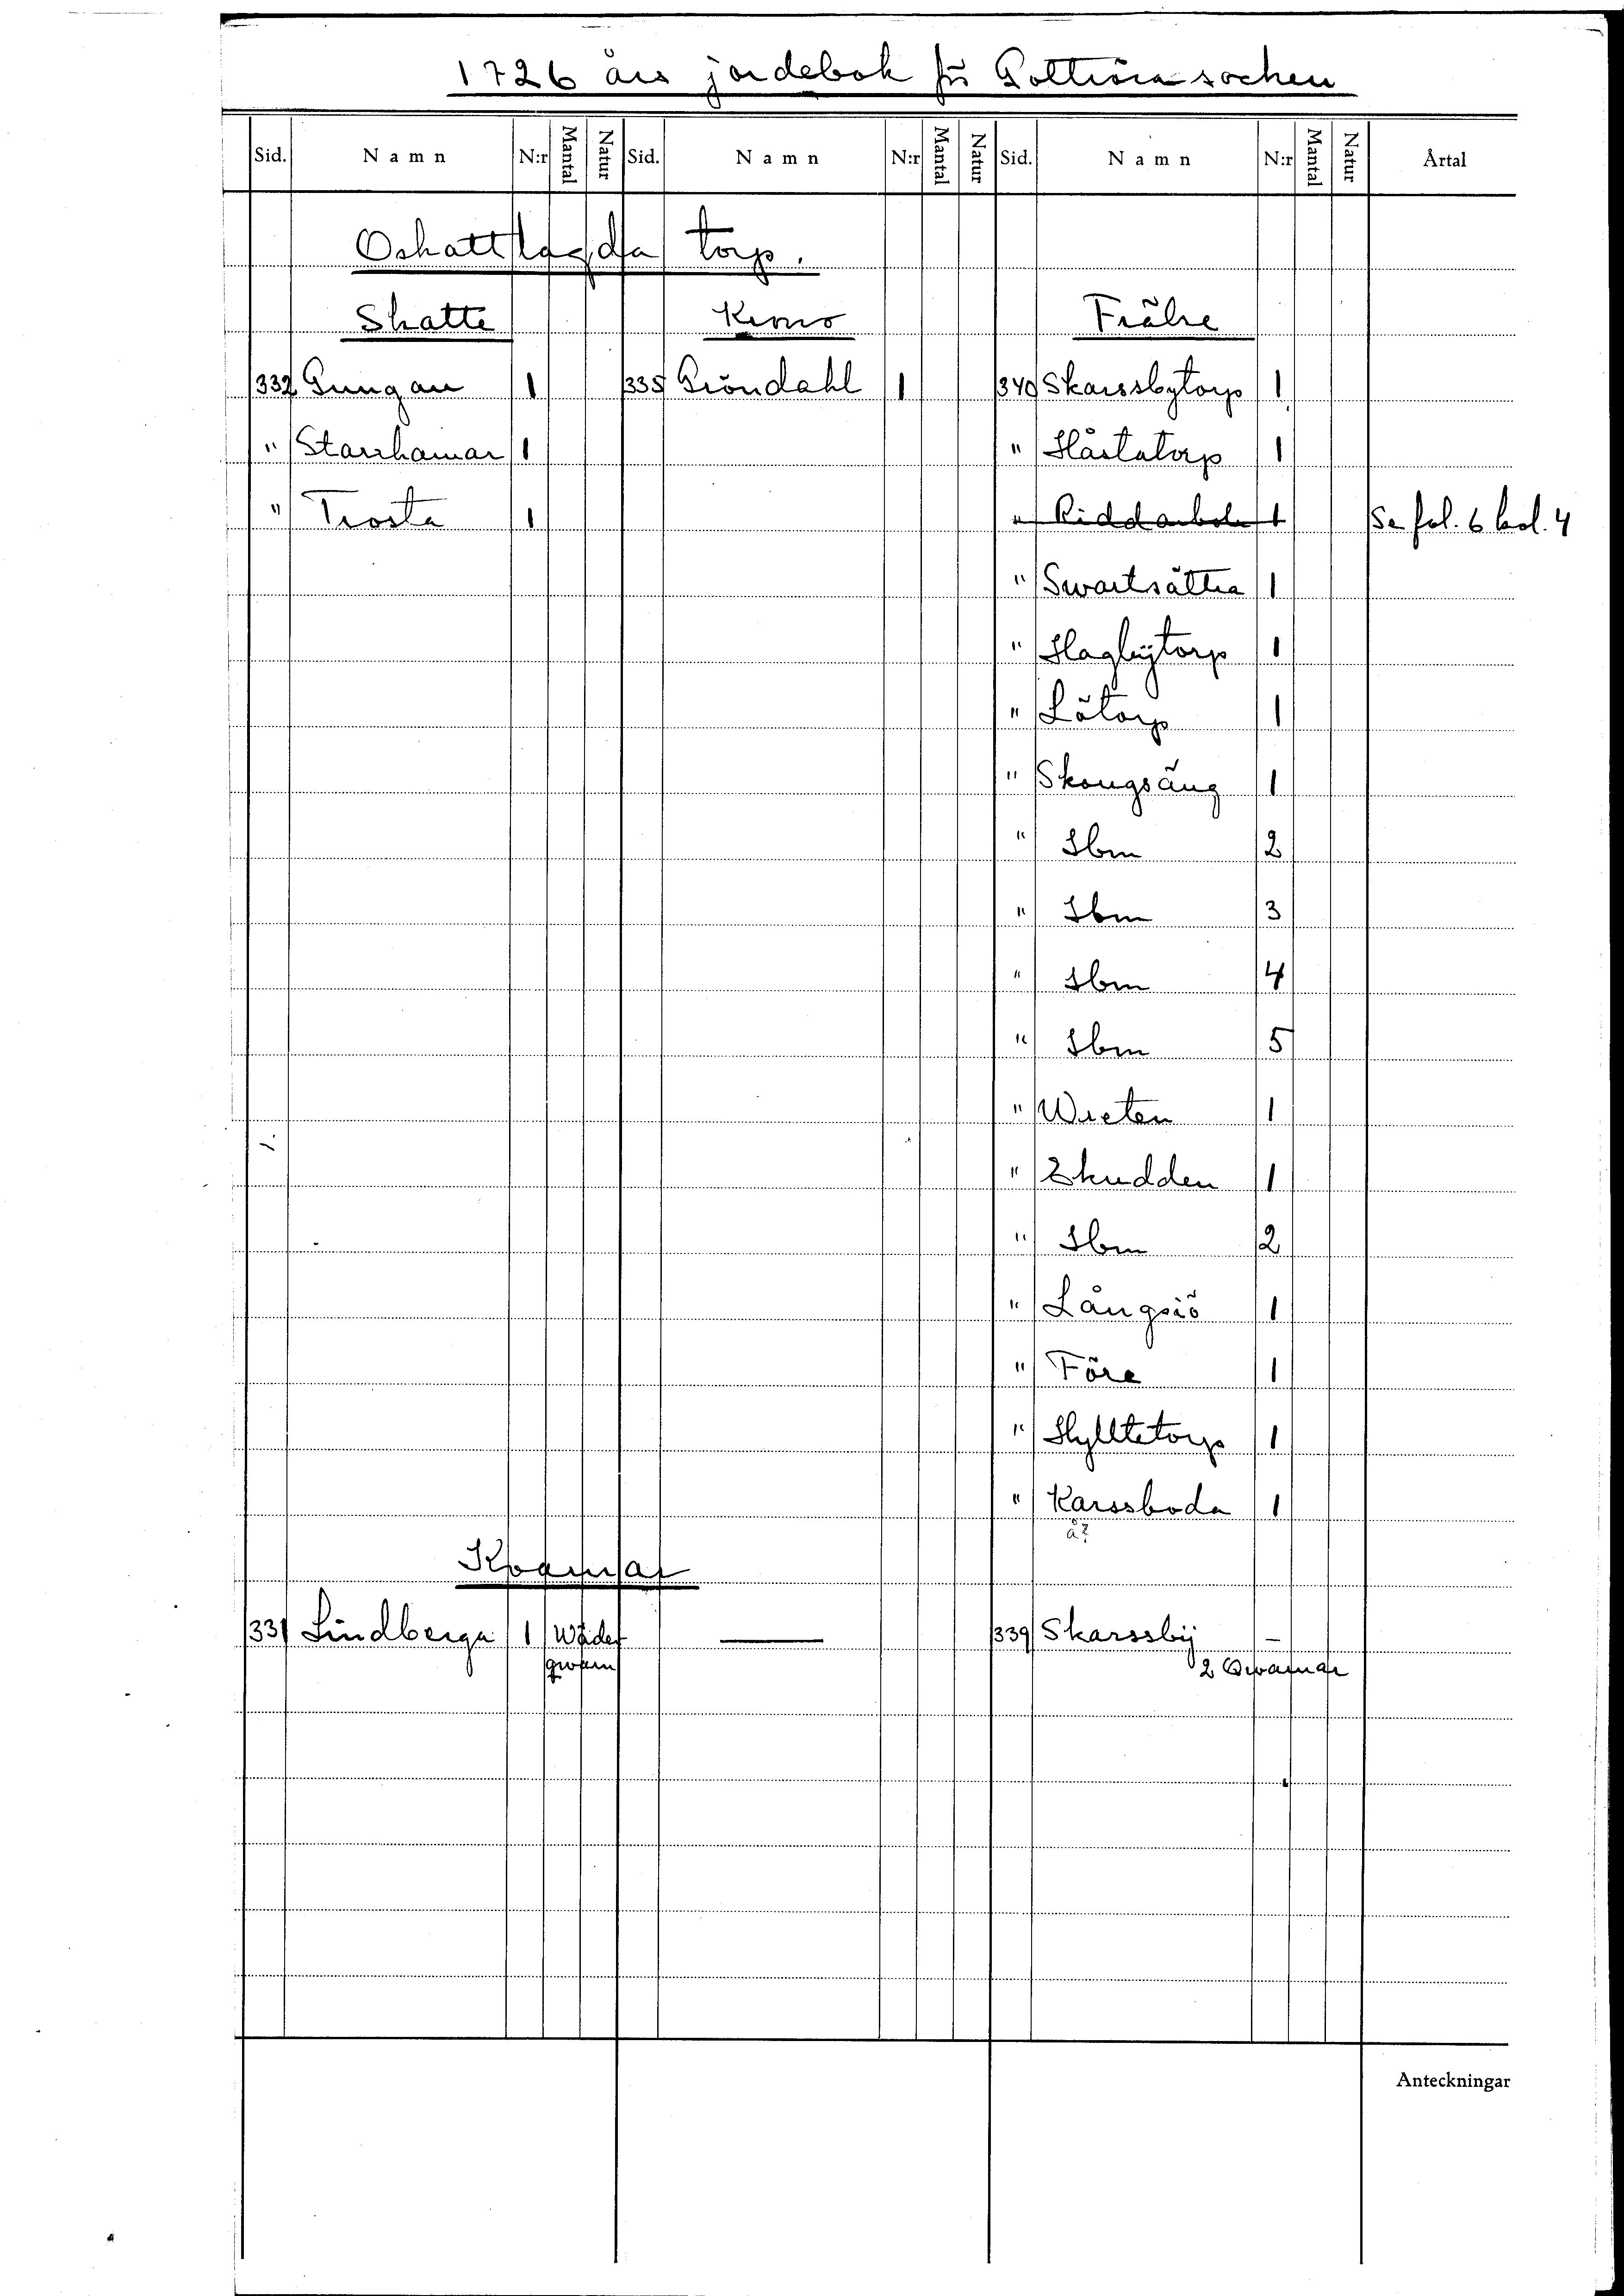 1726 års jordebok för Gottröra socken
Sid. Namn N:r Mantal Natur Sid. Namn N:r Mantal Natur Sid. Namn N:r Mantal Natur Årtal
Oskattlagda torp.
Skatte Krono Frälse
332 Gungan 1 335 Gröndahl 1 340 Skarssbytorp 1
" Starrhamar 1 " Håstatorp 1
" Trosta 1 " Riddarbola 1 Se fol. 6 kol. 4
" Swartsättra 1
" Hagbÿtorp 1
" Lötorp 1
" Skougsäng 1
" Ibm 2
" Ibm 3
" Ibm 4
" Ibm 5
" Wreten 1
" Ekudden 1
" Ibm 2
" Långsiö 1
" Före 1
" Hylltetorp 1
" Karssboda 1
å?
Kvarnar
331 Lindberga 1 Wäder — 339 Skarssbÿ -
qwarn 2 Qwarnar
Anteckningar